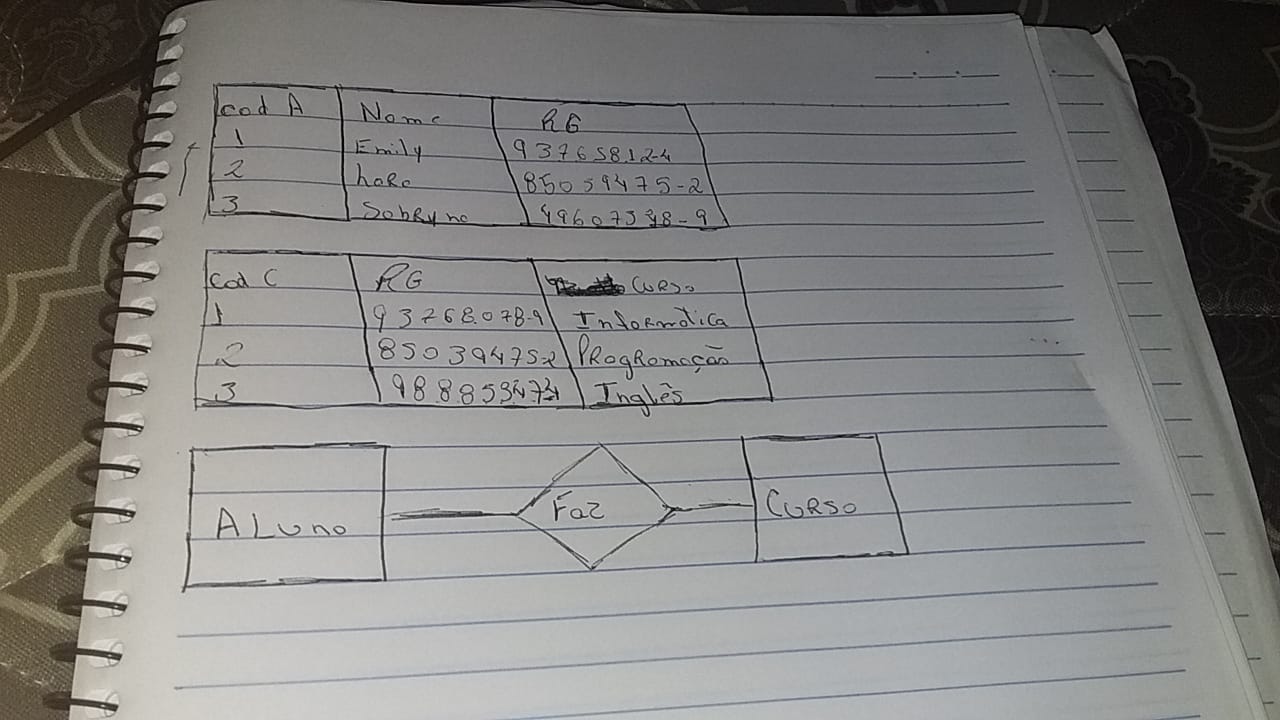 cod A Nome RG
1 Emily 937658124
2 Lara 85039475-2
3 Sabryna -9
Cod C RG Curso
1 937680789 Informática
2 850394752 Programação
3 Inglês
ALuno Faz Curso